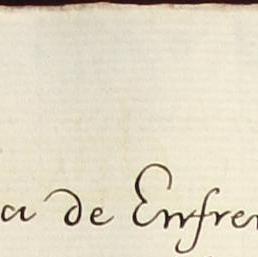 a de Enfre